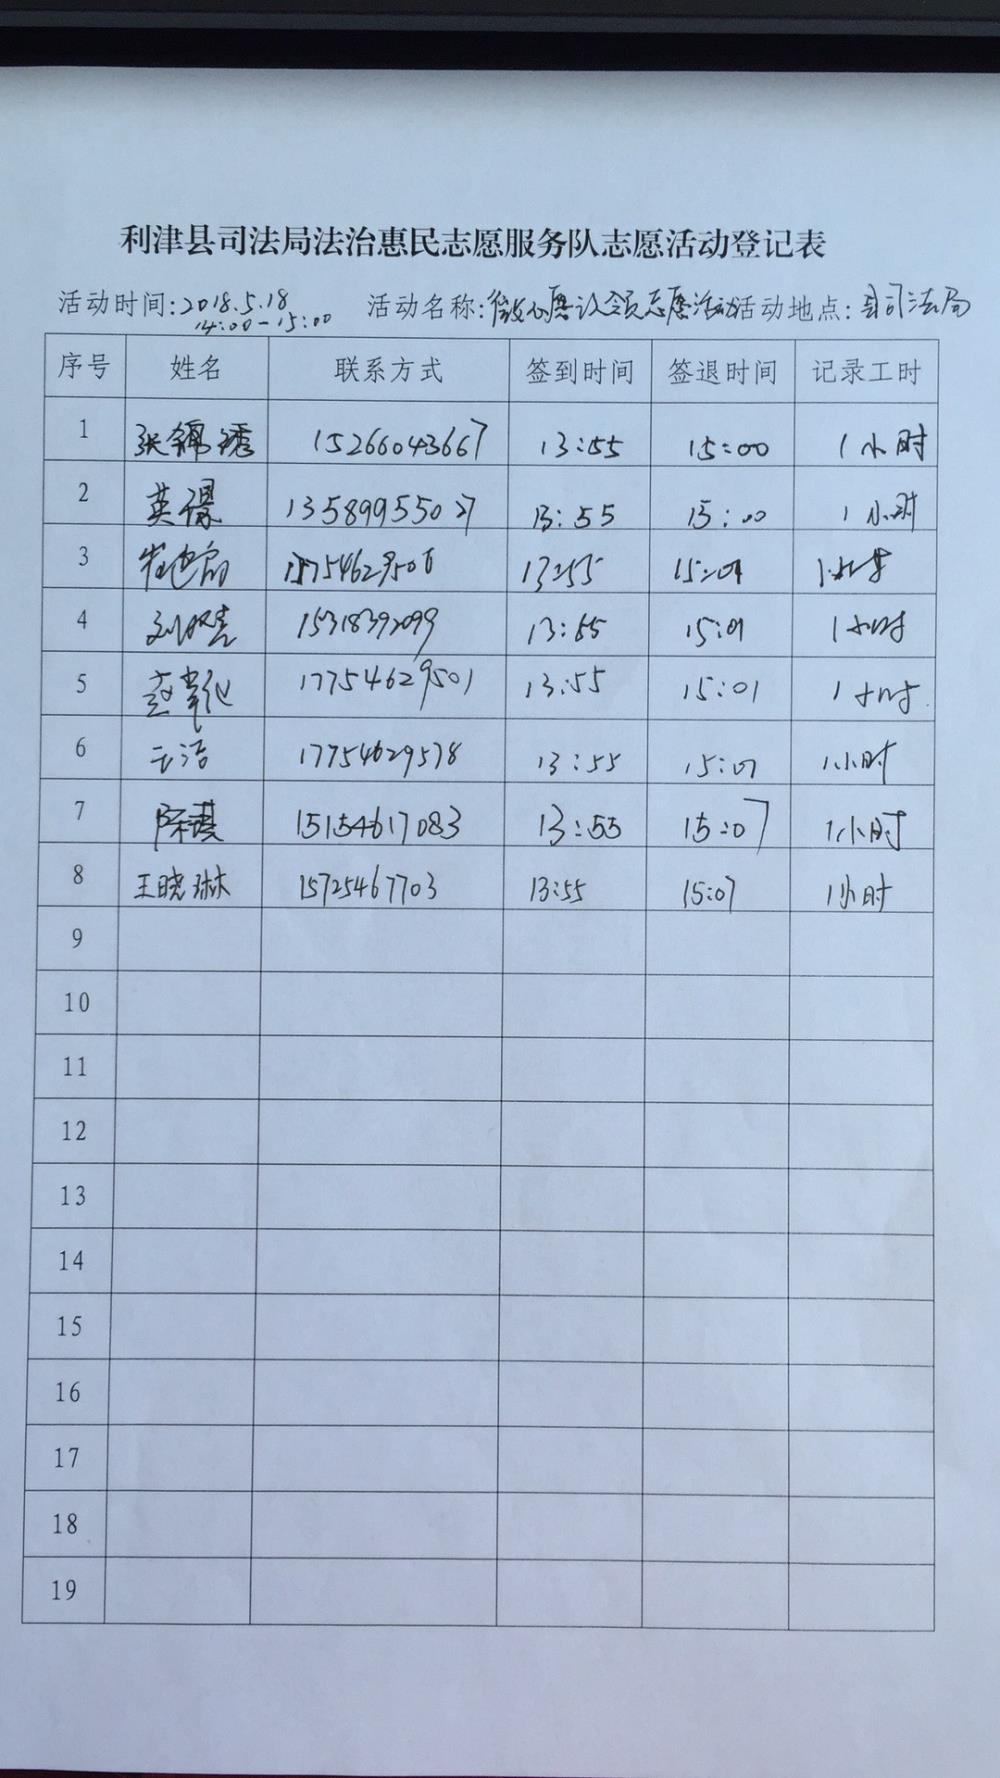 利津县司法局法治惠民志愿服务队志愿活动登记表
活动时间:2018.5.18 14:00-15:00 活动名称:微心愿认领志愿活动 活动地点:县司法局
序号 姓名 联系方式 签到时间 签退时间 记录工时
1 张锦绣 15266043667 13:55 15:00 1小时
2 13589955027 13:55 15:00 1小时
3 13:55 15:01
4 15318392099 13:55 15:01 1小时
5 17754629501 13:55 15:01 1小时
6 17754629578 13:55 15:01 1小时
7 15154617083 13:55 15:07 1小时
8 王晓琳 15725467703 13:55 15:07 1小时
9
10
11
12
13
14
15
16
17
18
19